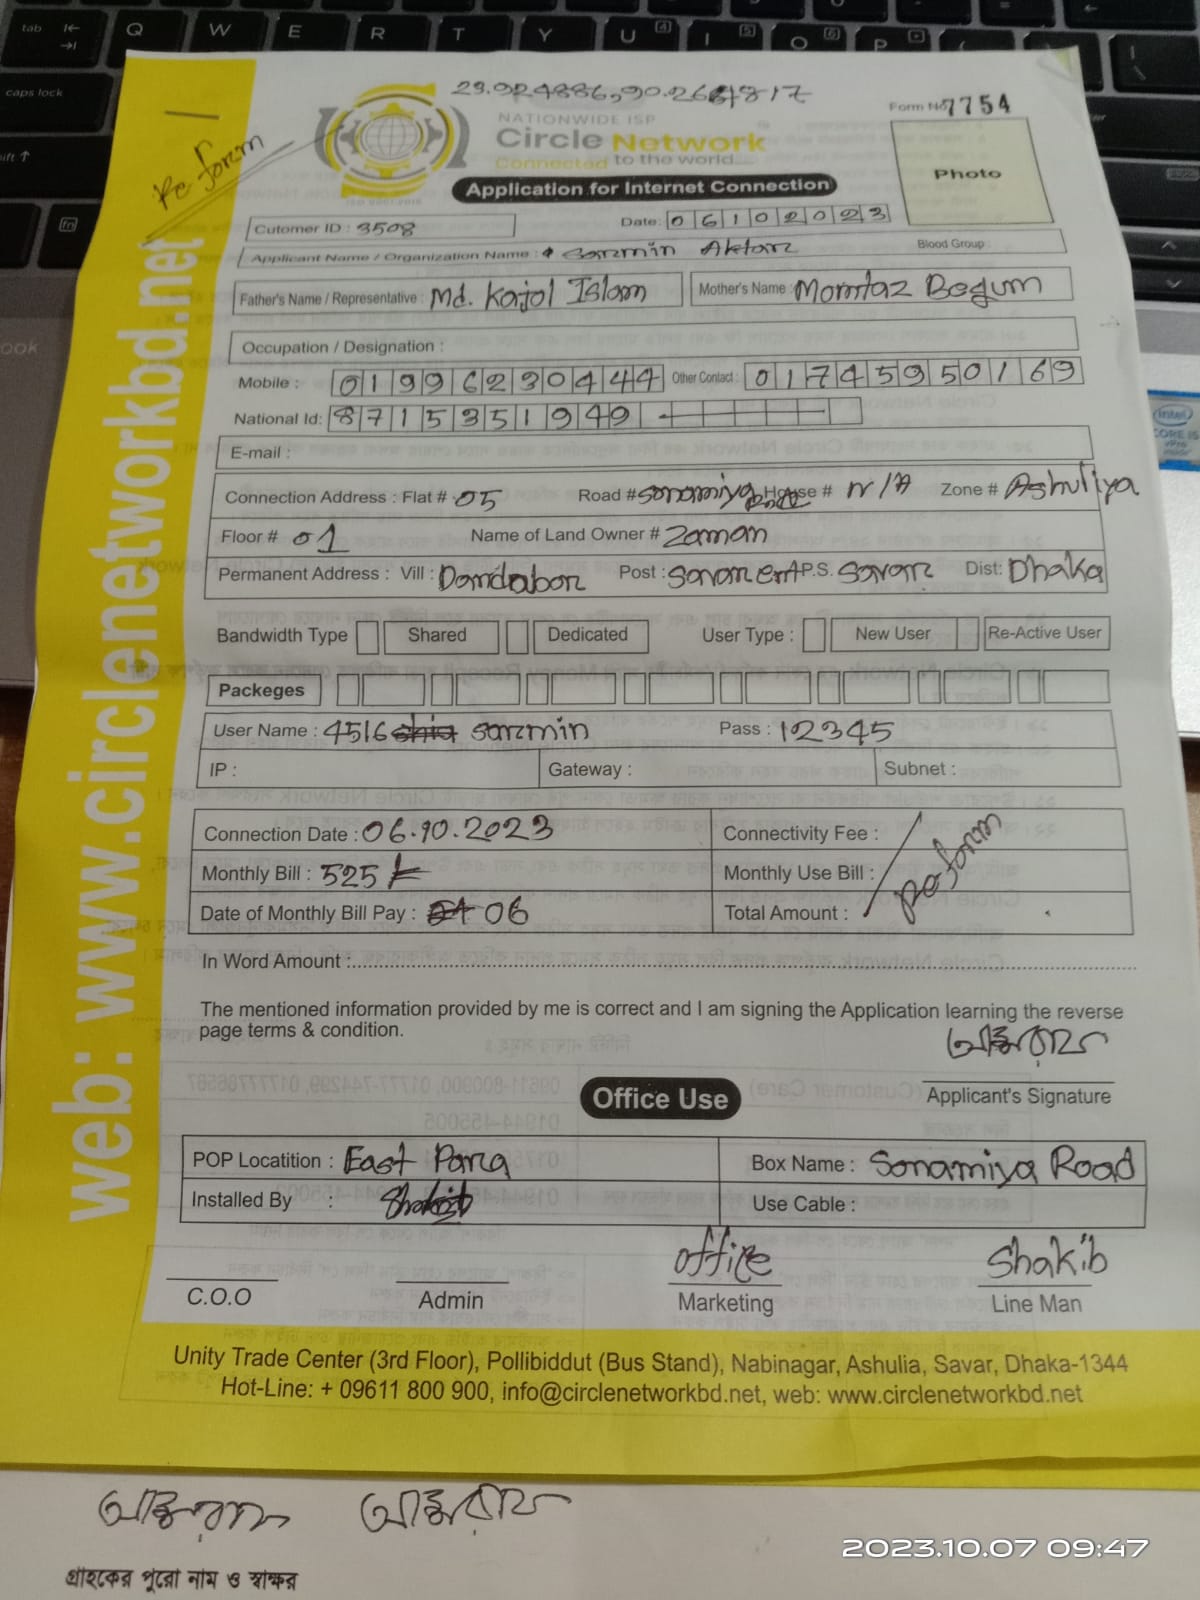 Re form
NATIONWIDE ISP
Circle Network
Connected to the world
ISO 9001:2015
Form No 7754
Photo
Application for Internet Connection
Cutomer ID : 3508
Date: 06102023
Applicant Name / Organization Name : Sarmin Aktar
Blood Group :
Father's Name / Representative : Md. Kajol Islam
Mother's Name : Momtaz Begum
Occupation / Designation :
Mobile : 01996230444
Other Contact : 01745950169
National Id: 8715351949
E-mail :
Connection Address : Flat # 05 Road # Sonamiya Road House # N/A Zone # Ashuliya
Floor # 01 Name of Land Owner # Zaman
Permanent Address : Vill : Dandabor Post : P.S. Savar Dist: Dhaka
Bandwidth Type Shared Dedicated User Type : New User Re-Active User
Packeges
User Name : 4516 sarmin Pass : 12345
IP : Gateway : Subnet :
Connection Date : 06.10.2023 Connectivity Fee :
Monthly Bill : 525 Monthly Use Bill :
Date of Monthly Bill Pay : 06 Total Amount :
Re form
In Word Amount :
The mentioned information provided by me is correct and I am signing the Application learning the reverse
page terms & condition.
Applicant's Signature
Office Use
POP Locatition : East Para Box Name : Sonamiya Road
Installed By : Shakib Use Cable :
office Shakib
C.O.O Admin Marketing Line Man
Unity Trade Center (3rd Floor), Pollibiddut (Bus Stand), Nabinagar, Ashulia, Savar, Dhaka-1344
Hot-Line: + 09611 800 900, info@circlenetworkbd.net, web: www.circlenetworkbd.net
web: www.circlenetworkbd.net
গ্রাহকের পুরো নাম ও স্বাক্ষর
2023.10.07 09:47